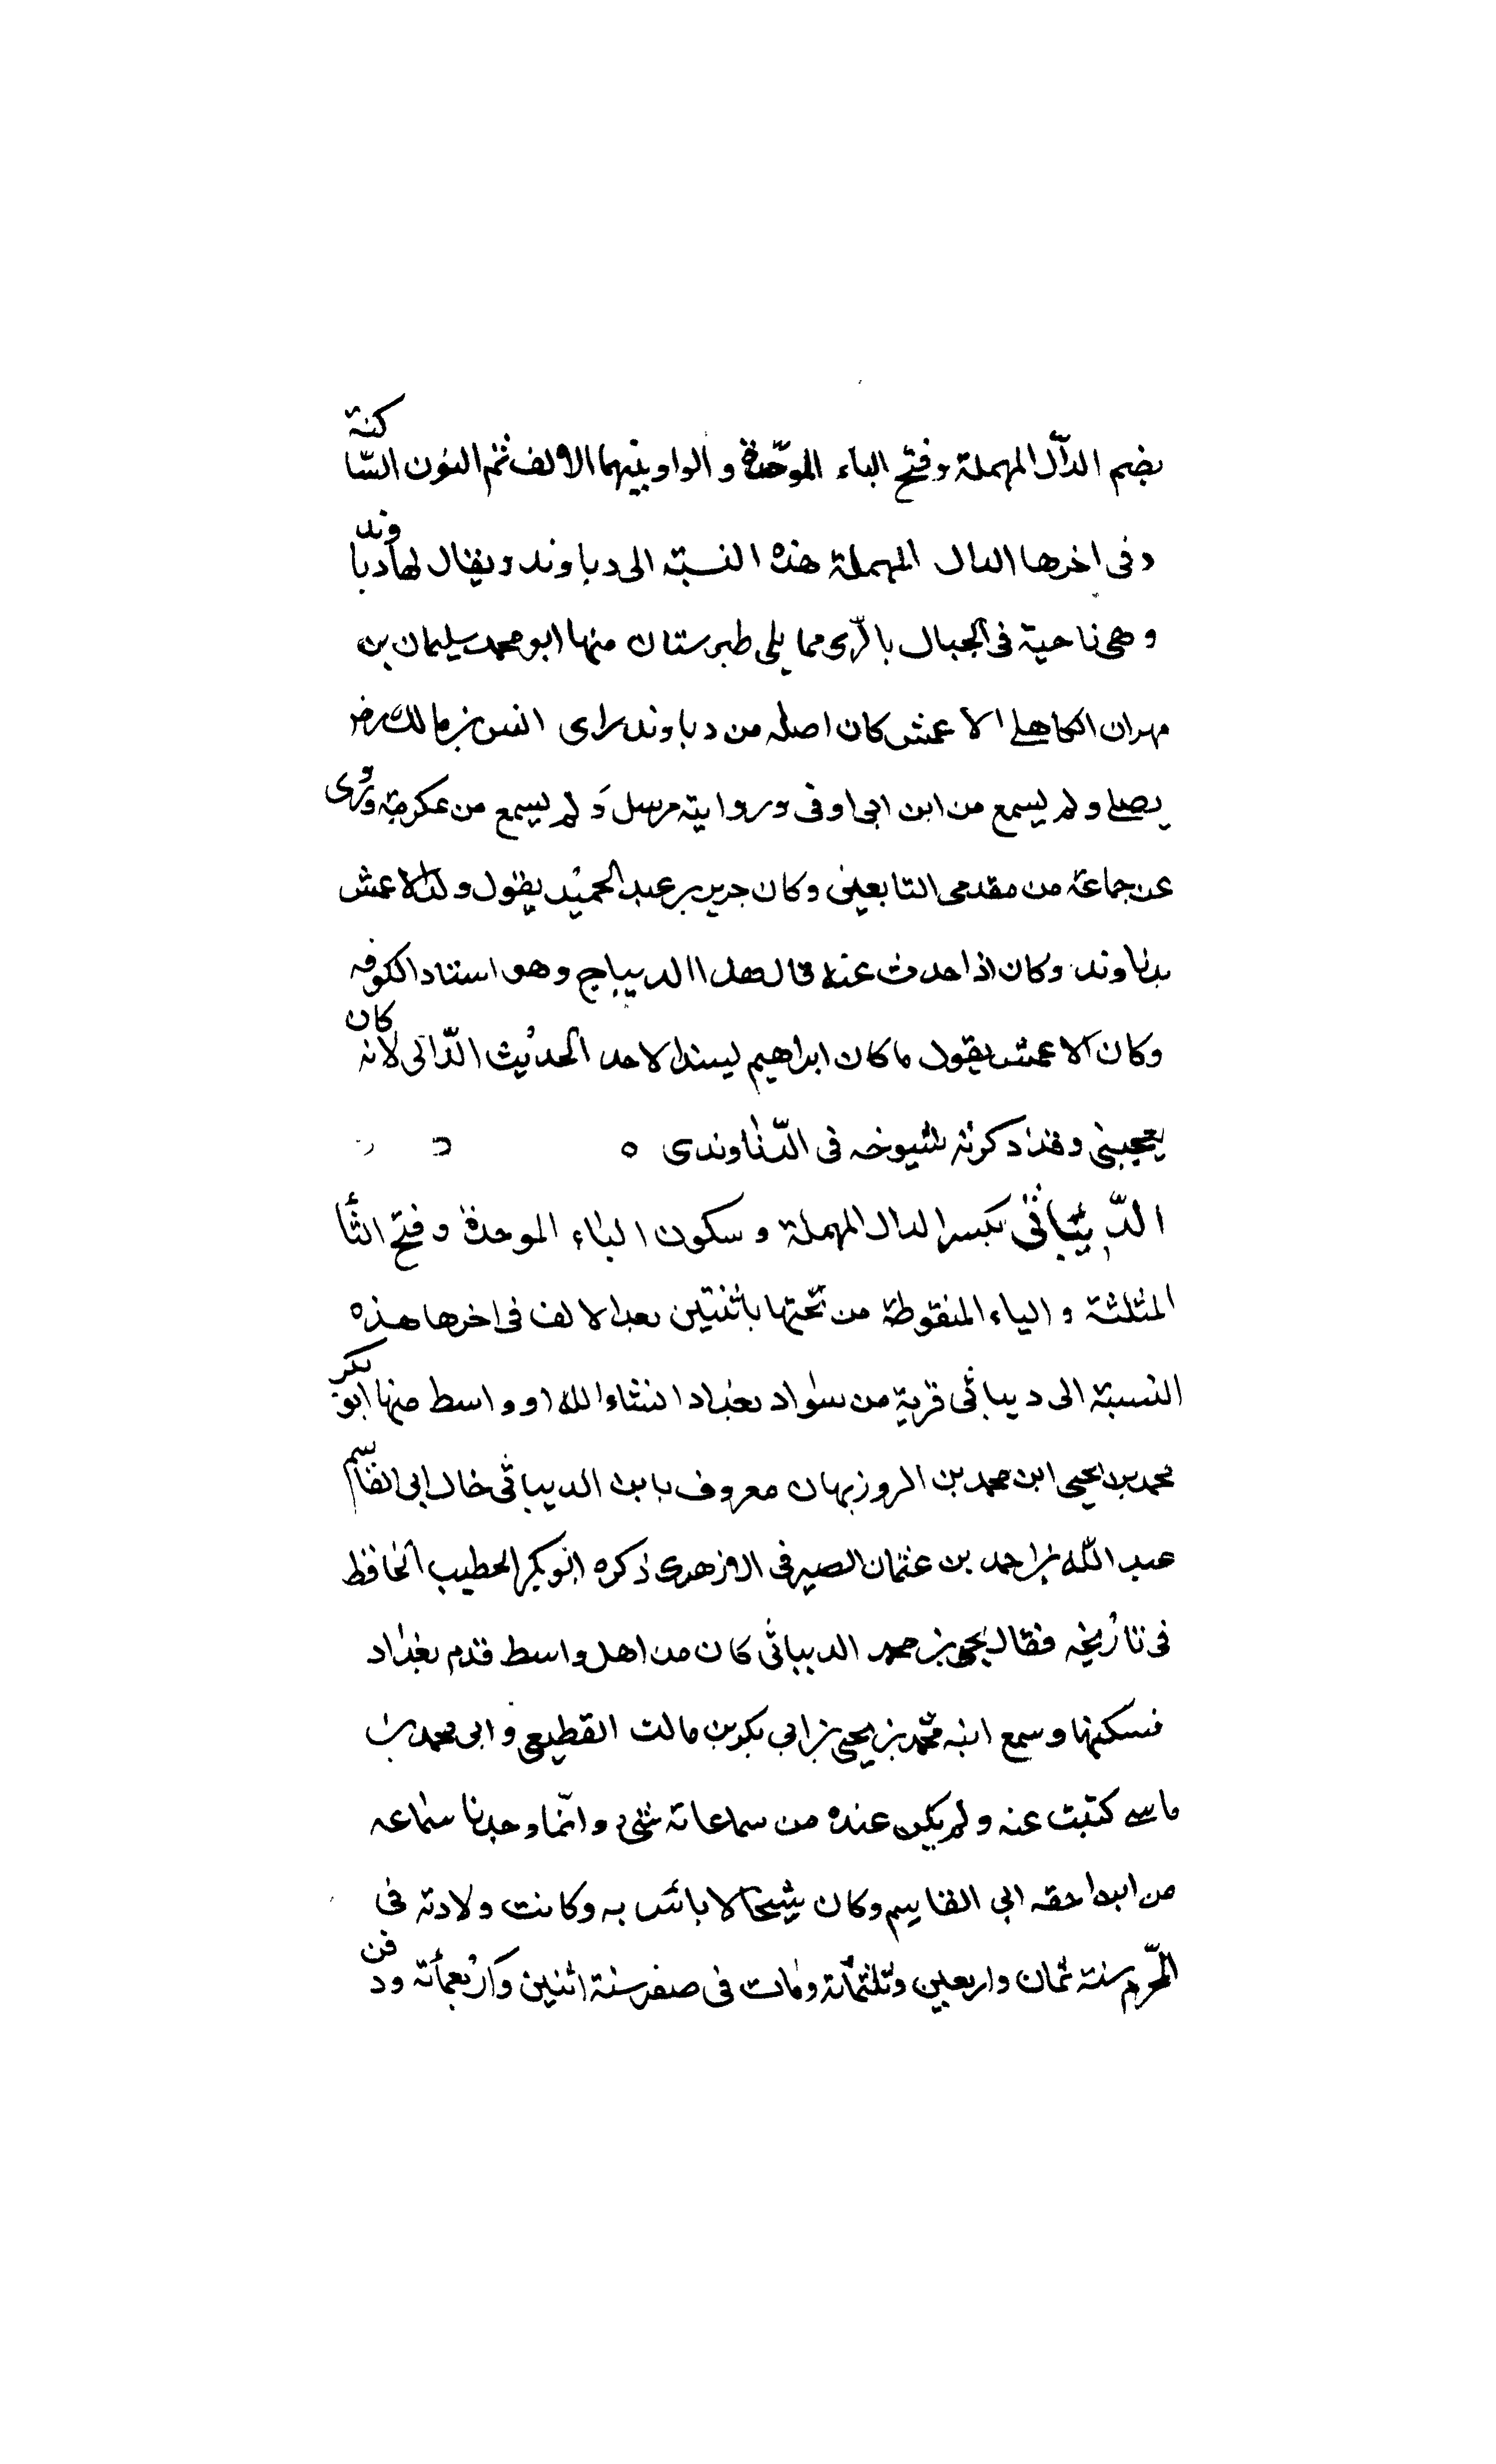 بضم الدال المهملة وفتح الباء الموحدة والواو بينهما الالف ثم النون الساكنة
وفى اخرها الدال المهملة هذه النسبة الى دباوند ويقال لها دباوند
وهى ناحية فى الجبال بالرى مما يلى طبرستان منها ابو محمد سليمان بن
مهران الكاهلى الاعمش كان اصله من دباوند راى انس بن مالك رض
يصلى ولم يسمع من ابن ابى اوفى وروايته مرسل ولم يسمع من عكرمة وروى
عن جماعة من مقدمى التابعين وكان جرير بن عبد الحميد يقول ولد الاعمش
بدباوند وكان اذا حدث عنه قال هذا الديباج وهو استاد الكوفه
وكان الاعمش يقول ما كان ابراهيم يسند لاحد الحديث الا لى لانه كان
يعجبنى وقد ذكرته شيوخه فى الدناوندى ه
الدبثائى بكسر الدال المهملة وسكون الباء الموحدة وفتح الثا
المثلثة والياء المنقوطة من تحتها باثنتين بعد الالف فى اخرها هذه
النسبة الى ديباثى قرية من سواد بغداد انشاء الله او واسط منها ابو بكر
محمد بن يحيى ابن محمد بن الروزبهان معروف بابن الديباثى خال ابى القاسم
عبد الله بن احمد بن عثمان الصيرفى الازهرى ذكره ابو بكر الخطيب الحافظ
فى تاريخه فقال يحيى بن محمد الديباثى كان من اهل واسط قدم بغداد
فسكنها وسمع ابنه محمد بن يحيى بن ابى بكر بن مالك القطيعى وابى محمد بن
ماسى كتبت عنه ولم يكن عنده من سماعاته شىء وانما وجدنا سماعه
من ابن اخته ابى القاسم وكان شيخا لا باس به وكانت ولادته فى
المحرم سنة ثمان واربعين وثلثمائة ومات فى صفر سنة اثنين واربعمائة ودفن